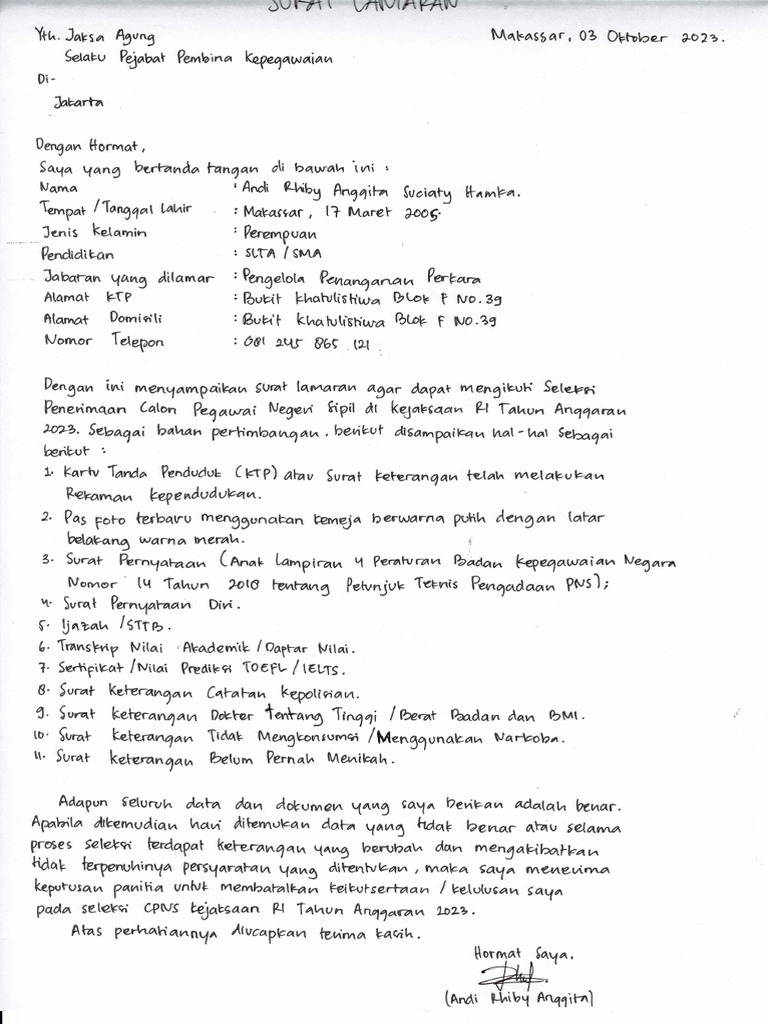 SURAT LAMARAN
Yth. Jaksa Agung
Makassar, 03 Oktober 2023.
Selaku Pejabat Pembina Kepegawaian
Di-
Jakarta
Dengan Hormat,
Saya yang bertanda tangan di bawah ini :
Nama : Andi Rhiby Anggita Suciaty Hamka.
Tempat / Tanggal lahir : Makassar, 17 Maret 2005.
Jenis Kelamin : Perempuan
Pendidikan : SLTA / SMA
Jabatan yang dilamar : Pengelola Penanganan Perkara
Alamat KTP : Bukit Khatulistiwa Blok F No.39
Alamat Domisili : Bukit Khatulistiwa Blok F No.39
Nomor Telepon : 081 245 865 121
Dengan ini menyampaikan surat lamaran agar dapat mengikuti Seleksi
Penerimaan Calon Pegawai Negeri Sipil di Kejaksaan RI Tahun Anggaran
2023. Sebagai bahan pertimbangan, berikut disampaikan hal-hal sebagai
berikut :
1. Kartu Tanda Penduduk (KTP) atau Surat keterangan telah melakukan
Rekaman kependudukan.
2. Pas foto terbaru menggunakan kemeja berwarna putih dengan latar
belakang warna merah.
3. Surat Pernyataan (Anak Lampiran 4 Peraturan Badan Kepegawaian Negara
Nomor 14 Tahun 2018 tentang Petunjuk Teknis Pengadaan PNS);
4. Surat Pernyataan Diri.
5. Ijazah / STTB.
6. Transkrip Nilai Akademik / Daptar Nilai.
7. Sertifikat / Nilai Prediksi TOEFL / IELTS.
8. Surat keterangan Catatan Kepolisian.
9. Surat keterangan Dokter tentang Tinggi / Berat Badan dan BMI.
10. Surat keterangan Tidak Mengkonsumsi / Menggunakan Narkoba.
11. Surat keterangan Belum Pernah Menikah.
Adapun seluruh data dan dokumen yang saya berikan adalah benar.
Apabila dikemudian hari ditemukan data yang tidak benar atau selama
proses seleksi terdapat keterangan yang berubah dan mengakibatkan
tidak terpenuhinya persyaratan yang ditentukan, maka saya menerima
keputusan panitia untuk membatalkan keikutsertaan / kelulusan saya
pada seleksi CPNS kejaksaan RI Tahun Anggaran 2023.
Atas perhatiannya diucapkan terima kasih.
Hormat Saya.
(Andi Rhiby Anggita)